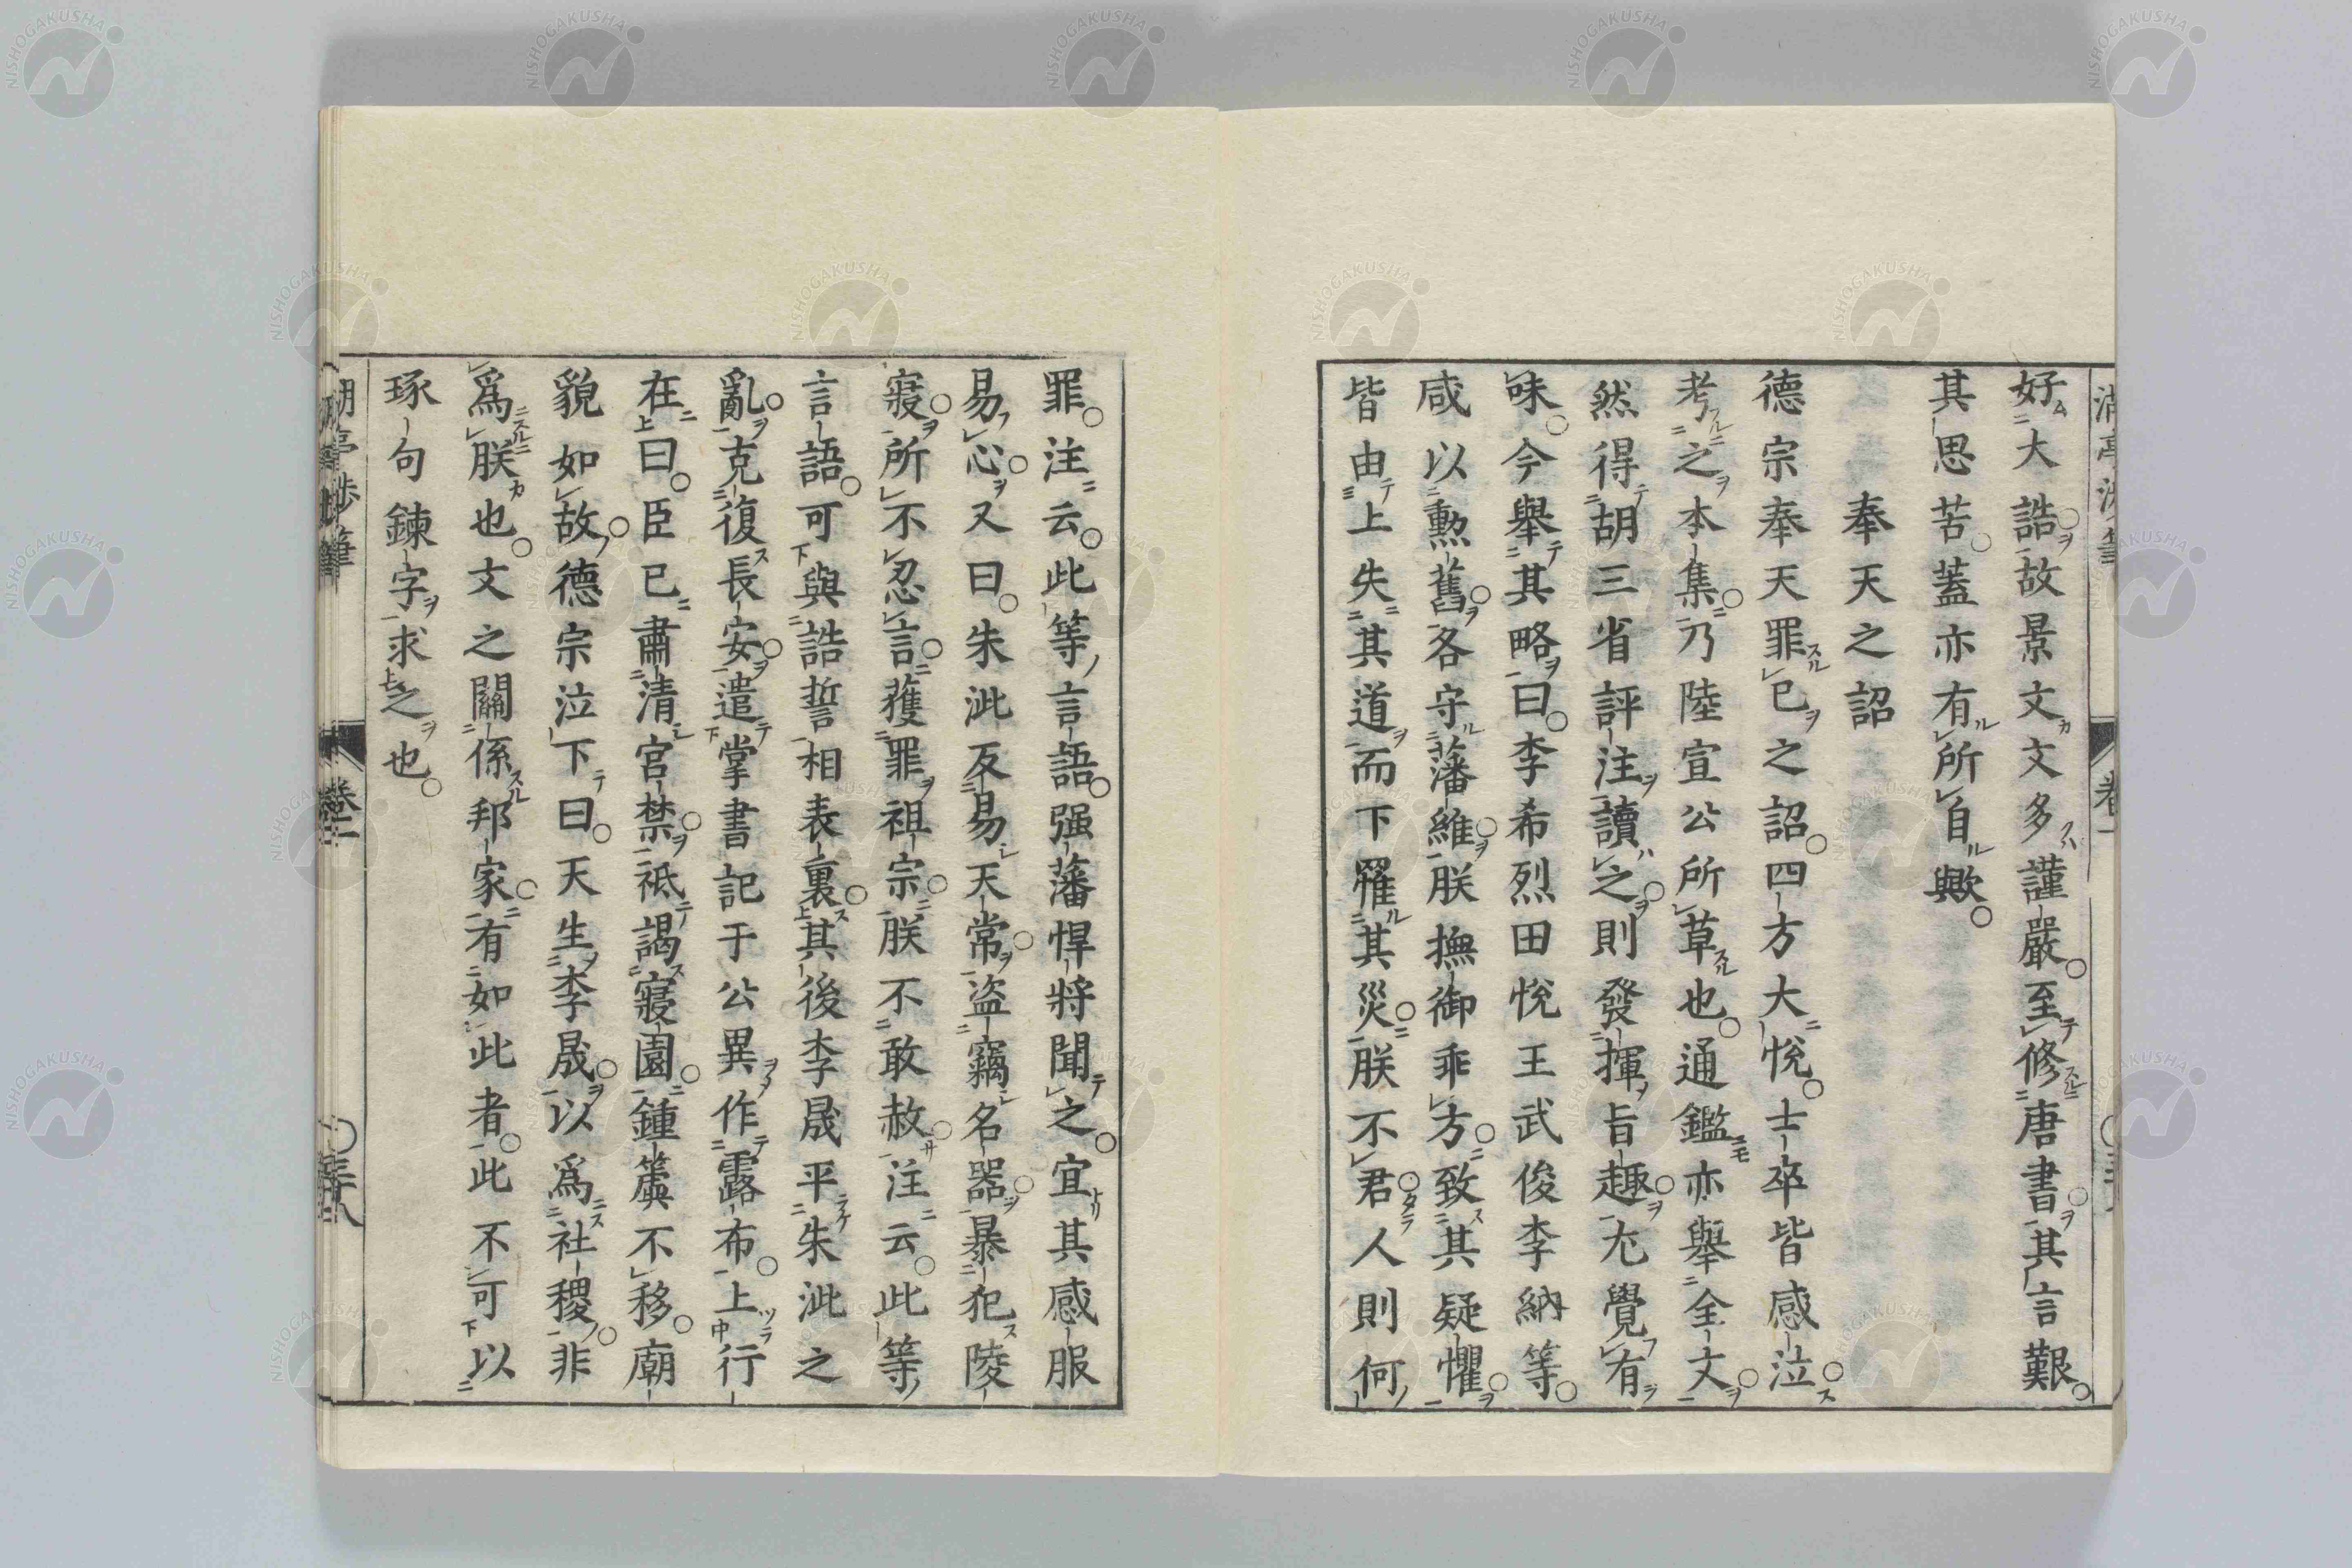 好大誥故景文文多謹嚴至修唐書其言艱
其思苦蓋亦有所自歟
奉天之詔
德宗奉天罪已之詔四方大悅士卒皆感泣
考之本集乃陸宣公所草也通鑑亦舉全文
然得胡三省評注讀之則發揮旨趣尤覺有
味今舉其略曰李希烈田悅王武俊李納等
咸以勲舊各守藩維朕撫御乖方致其疑懼
皆由上失其道而下罹其災朕不君人則何
罪注云此等言語强藩悍將聞之宜其感服
易心又曰朱泚反易天常盗竊名器暴犯陵
寢所不忍言獲罪祖宗朕不敢赦注云此等
言語可與誥誓相表裏其後李晟平朱泚之
亂克復長安遣掌書記于公異作露布上行
在曰臣已肅清宮禁祗謁寢園鍾簴不移廟
貌如故德宗泣下曰天生李晟以爲社稷非
爲朕也文之關係邦家有如此者此不可以
琢句鍊字求之也
NISHOGAKUSHA